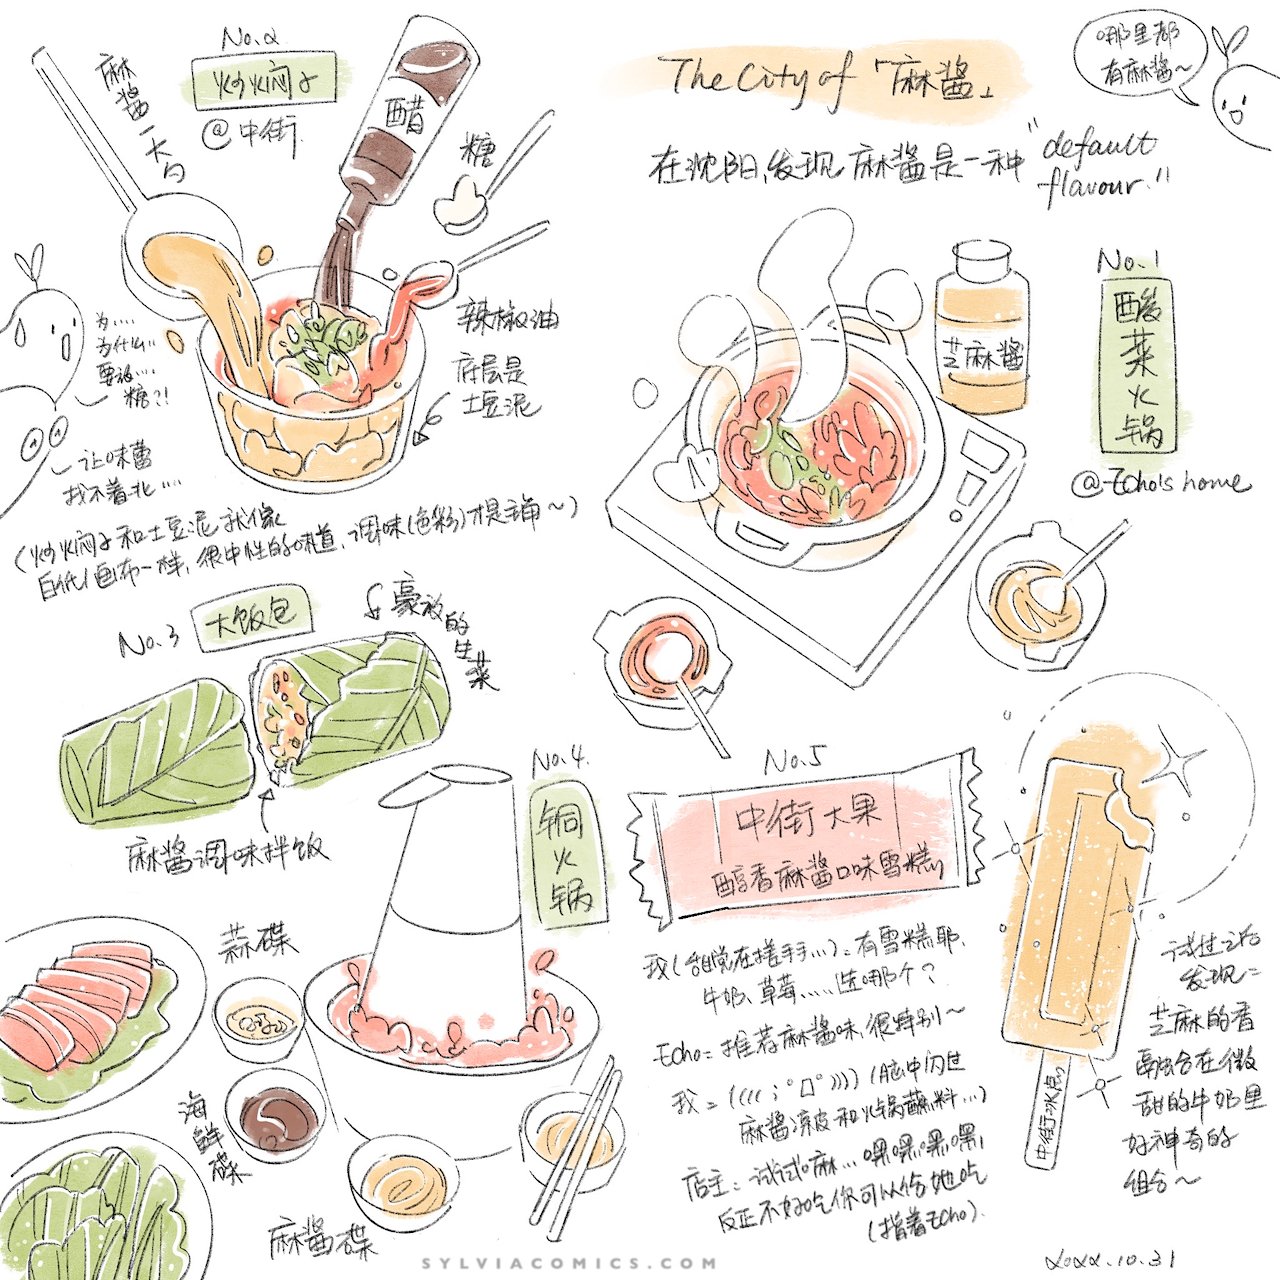 The City of「麻酱」
哪里都
有麻酱~
在沈阳,发现麻酱是一种
"default
flavour."
No.1
酸菜火锅
@Echo's home
芝麻酱
No.2
炒焖子
@中街
麻酱一大勺
醋
糖
辣椒油
底层是
土豆泥
为....
为什么..
要放...
糖?!
让味蕾
找不着北....
和土豆泥就像
白纸/画布一样,很中性的味道,调味(色彩)才是主角~)
No.3
大饭包
豪放的生菜
麻酱调味拌饭
No.4.
铜火锅
蒜碟
海鲜碟
麻酱碟
No.5
中街大果
醇香麻酱口味雪糕
我(自觉在搓手手...):有雪糕耶,
牛奶、草莓.....选哪个?
Echo:推荐麻酱味,很特别~
我:(((;°口°))))(脑中闪过
麻酱凉皮和火锅蘸料...)
店主:试试嘛...嘿嘿嘿嘿,
反正不好吃你可以给她吃
(指着Echo).
中街冰点
试过之后
发现:
芝麻的香
融合在微
甜的牛奶里
好神奇的
组合~
SYLVIACOMICS.COM
2022.10.31